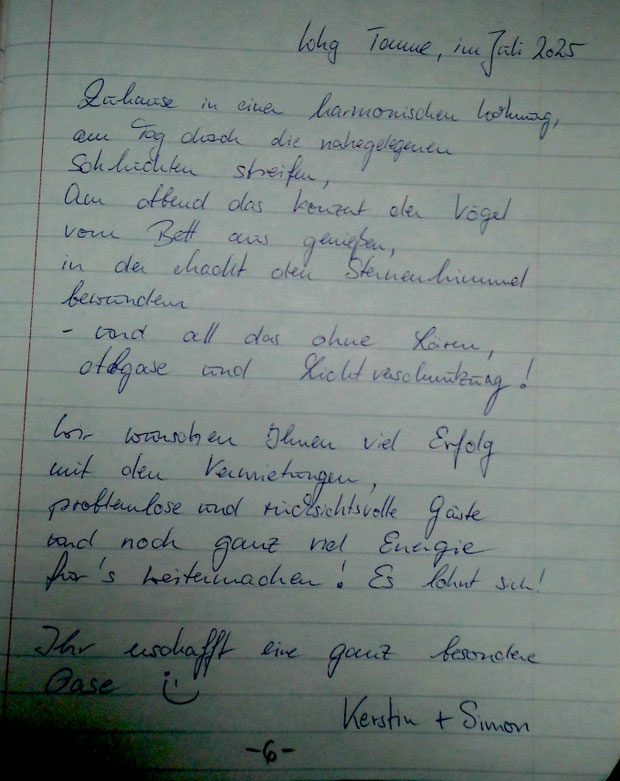 Whg Tanne, im Juli 2025
Zuhause in einer harmonischen Wohnung,
am Tag durch die nahegelegenen
Schluchten streifen,
Am Abend das Konzert der Vögel
vom Bett aus genießen,
in der Nacht den Sternenhimmel
bewundern
- und all das ohne Lärm,
Abgase und Lichtverschmutzung!
Wir wünschen Ihnen viel Erfolg
mit den Vermietungen,
problemlose und rücksichtsvolle Gäste
und noch ganz viel Energie
für's Weitermachen! Es lohnt sich!
Ihr erschafft eine ganz besondere
Oase :)
Kerstin + Simon
-6-